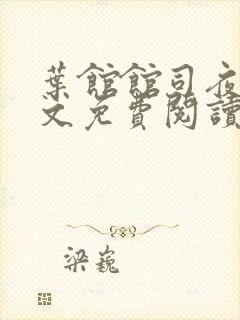 葉館館司夜
文免費閱讀
梁巍